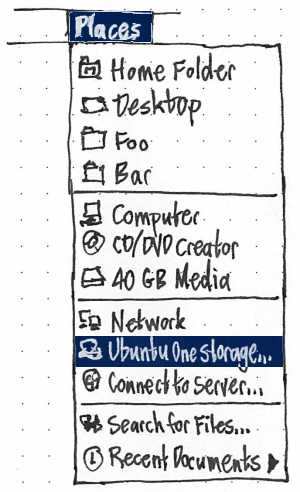 Places
Home Folder
Desktop
Foo
Bar
Computer
CD/DVD Creator
40 GB Media
Network
Ubuntu One storage...
Connect to Server...
Search for Files...
Recent Documents